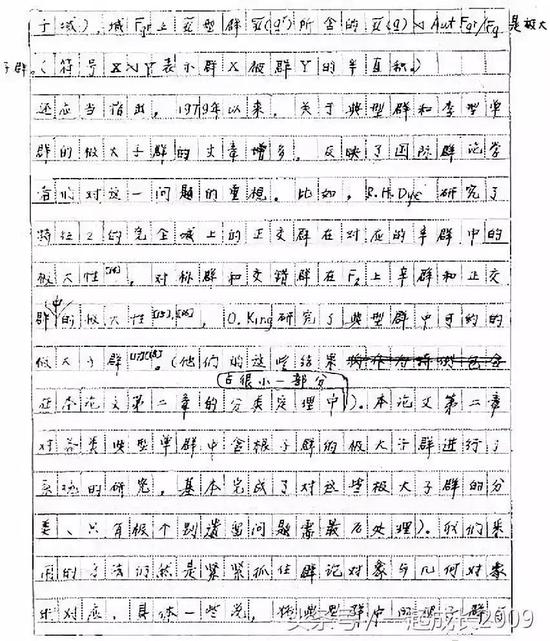 子域),域F_{q^r}上X型群X(q^r)所含的X(q)⋊Aut F_{q^r}/F_q是极大
子群。(符号X⋊Y表示群X被群Y的半直积。)
还应当指出,1979年以来,关于典型群和李型单
群的极大子群的文章增多,反映了国际群论学
者们对这一问题的重视。比如,R.H.Dye研究了
特征2的完全域上的正交群在对应的辛群中的
极大性[14],对称群和交错群在F₂上辛群和正交
群中的极大性[15],[16],O.King研究了典型群中可约的
极大子群[17][18]。(他们的这些结果
占很小一部分
在本论文第二章的分类定理中)。本论文第二章
对各类典型单群中含根子群的极大子群进行了
系统的研究,基本完成了对这些极大子群的分
类、只有极个别遗留问题需最后处理)。我们采
用的方法仍然是紧紧抓住群论对象与几何对象
的对应,具体一些说,将典型群中的根子群
头条号/一起成长2009